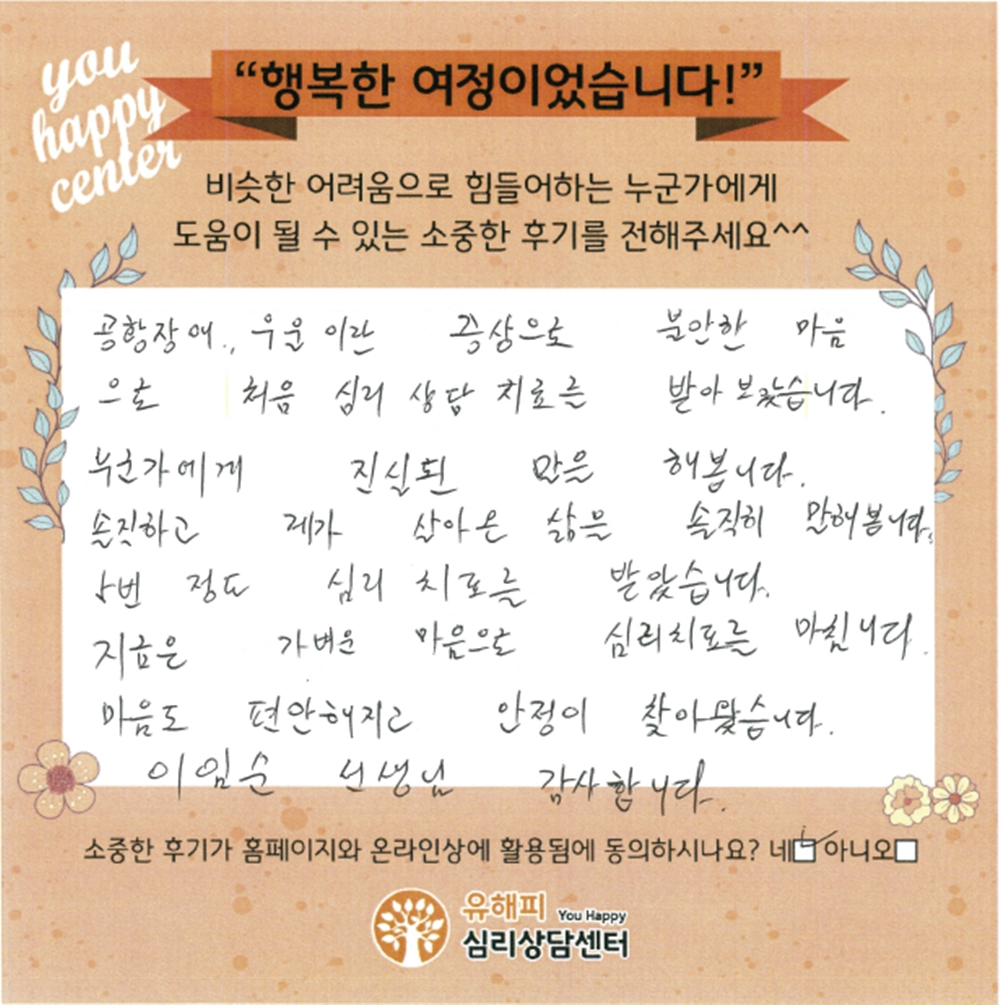 you
happy
center
“행복한 여정이었습니다!”
비슷한 어려움으로 힘들어하는 누군가에게
도움이 될 수 있는 소중한 후기를 전해주세요^^
공항장애., 우울이란 증상으로 불안한 마음
으로 처음 심리 상담 치료를 받아 보았습니다.
누군가에게 진실된 말을 해봅니다.
솔직하고 제가 살아온 삶을 솔직히 말해봅니다.
번 정도 심리 치료를 받았습니다.
지금은 가벼운 마음으로 심리치료를 마칩니다.
마음도 편안해지고 안정이 찾아왔습니다.
이임순 선생님 감사합니다.
소중한 후기가 홈페이지와 온라인상에 활용됨에 동의하시나요? 네 아니오
유해피 You Happy
심리상담센터